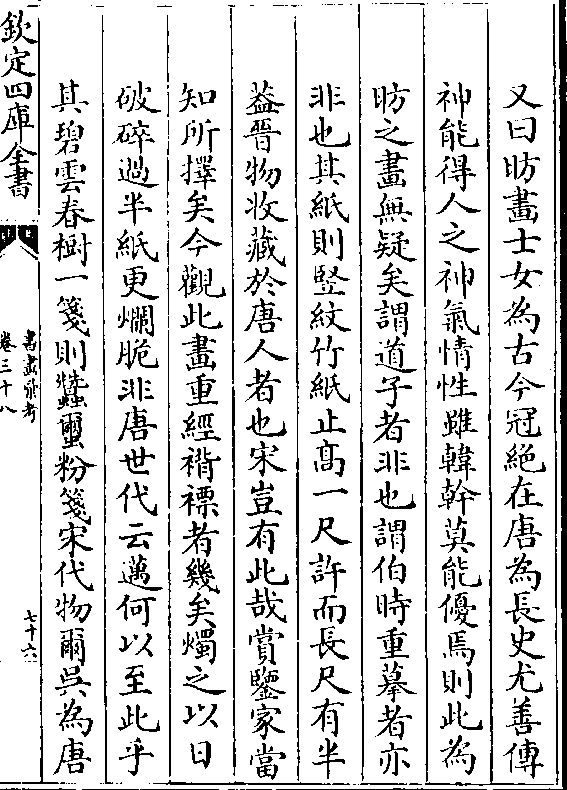 又曰昉畫士女為古今冠絶在唐為長史尤善傳
神能得人之神氣情性雖韓幹莫能優焉則此為
昉之畫無疑矣謂道子者非也謂伯時重摹者亦
非也其紙則竪紋竹紙止髙一尺許而長尺有半
葢晉物收藏於唐人者也宋豈有此哉賞鑒家當
知所擇矣今觀此畫重經褙褾者幾矣燭之以日
破碎過半紙更爛脆非唐世代云邁何以至此乎
其碧雲春樹一箋則蠶蠒粉箋宋代物爾呉為唐
欽定四庫全書
書畫彚考
卷三十八
七十六